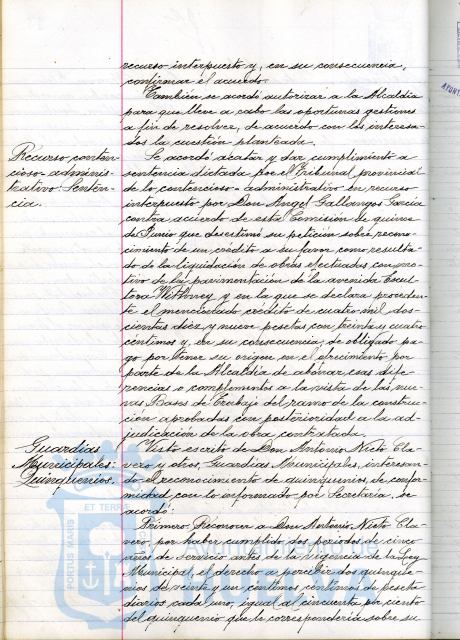 recurso interpuesto y, en su consecuencia,
confirmar el acuerdo.
También se acordó autorizar a la Alcaldía
para que lleve a cabo las oportunas gestiones
a fin de resolver, de acuerdo con los interesa-
dos la cuestión planteada.
Recurso conten-
cioso-adminis-
trativo Senten-
cia.
Se acordó acatar y dar cumplimiento a
sentencia dictada por el Tribunal provincial
de lo contencioso-administrativo en recurso
interpuesto por Don Angel Gallangos García
contra acuerdo de esta Comisión de quince
de Junio que desestimó su petición sobre recono-
cimiento de un crédito a su favor como resulta-
do de la liquidación de obras efectuadas con mo-
tivo de la pavimentación de la avenida Escul-
tora Withney y en la que se declara proceden-
te el mencionado crédito de cuatro mil dos-
cientas diez y nueve pesetas con treinta y cuatro
céntimos y, en su consecuencia, de obligado pa-
go por tener su origen en el ofrecimiento por
parte de la Alcaldía de abonar esas dife-
rencias o complementos a la vista de las nue-
vas Bases de Trabajo del ramo de la construc-
ción aprobadas con posterioridad a la ad-
judicación de la obra contratada.
Guardias
Municipales:
Quinquenios.
Visto escrito de Don Antonio Nieto Cla-
vero y otros, Guardias Municipales, interesan-
do el reconocimiento de quinquenios, de confor-
midad con lo informado por Secretaría, se
acordó:
Primero: Reconocer a Don Antonio Nieto Cla-
vero, por haber cumplido dos periodos de cinco
años de servicio antes de la vigencia de la Ley
Municipal, el derecho a percibir dos quinque-
nios de veinte y un céntimos céntimos de peseta
diarios cada uno, igual al cincuenta por ciento
del quinquenio que le correspondería sobre su
PORTUS MARIS
ET TERR
HUELVA